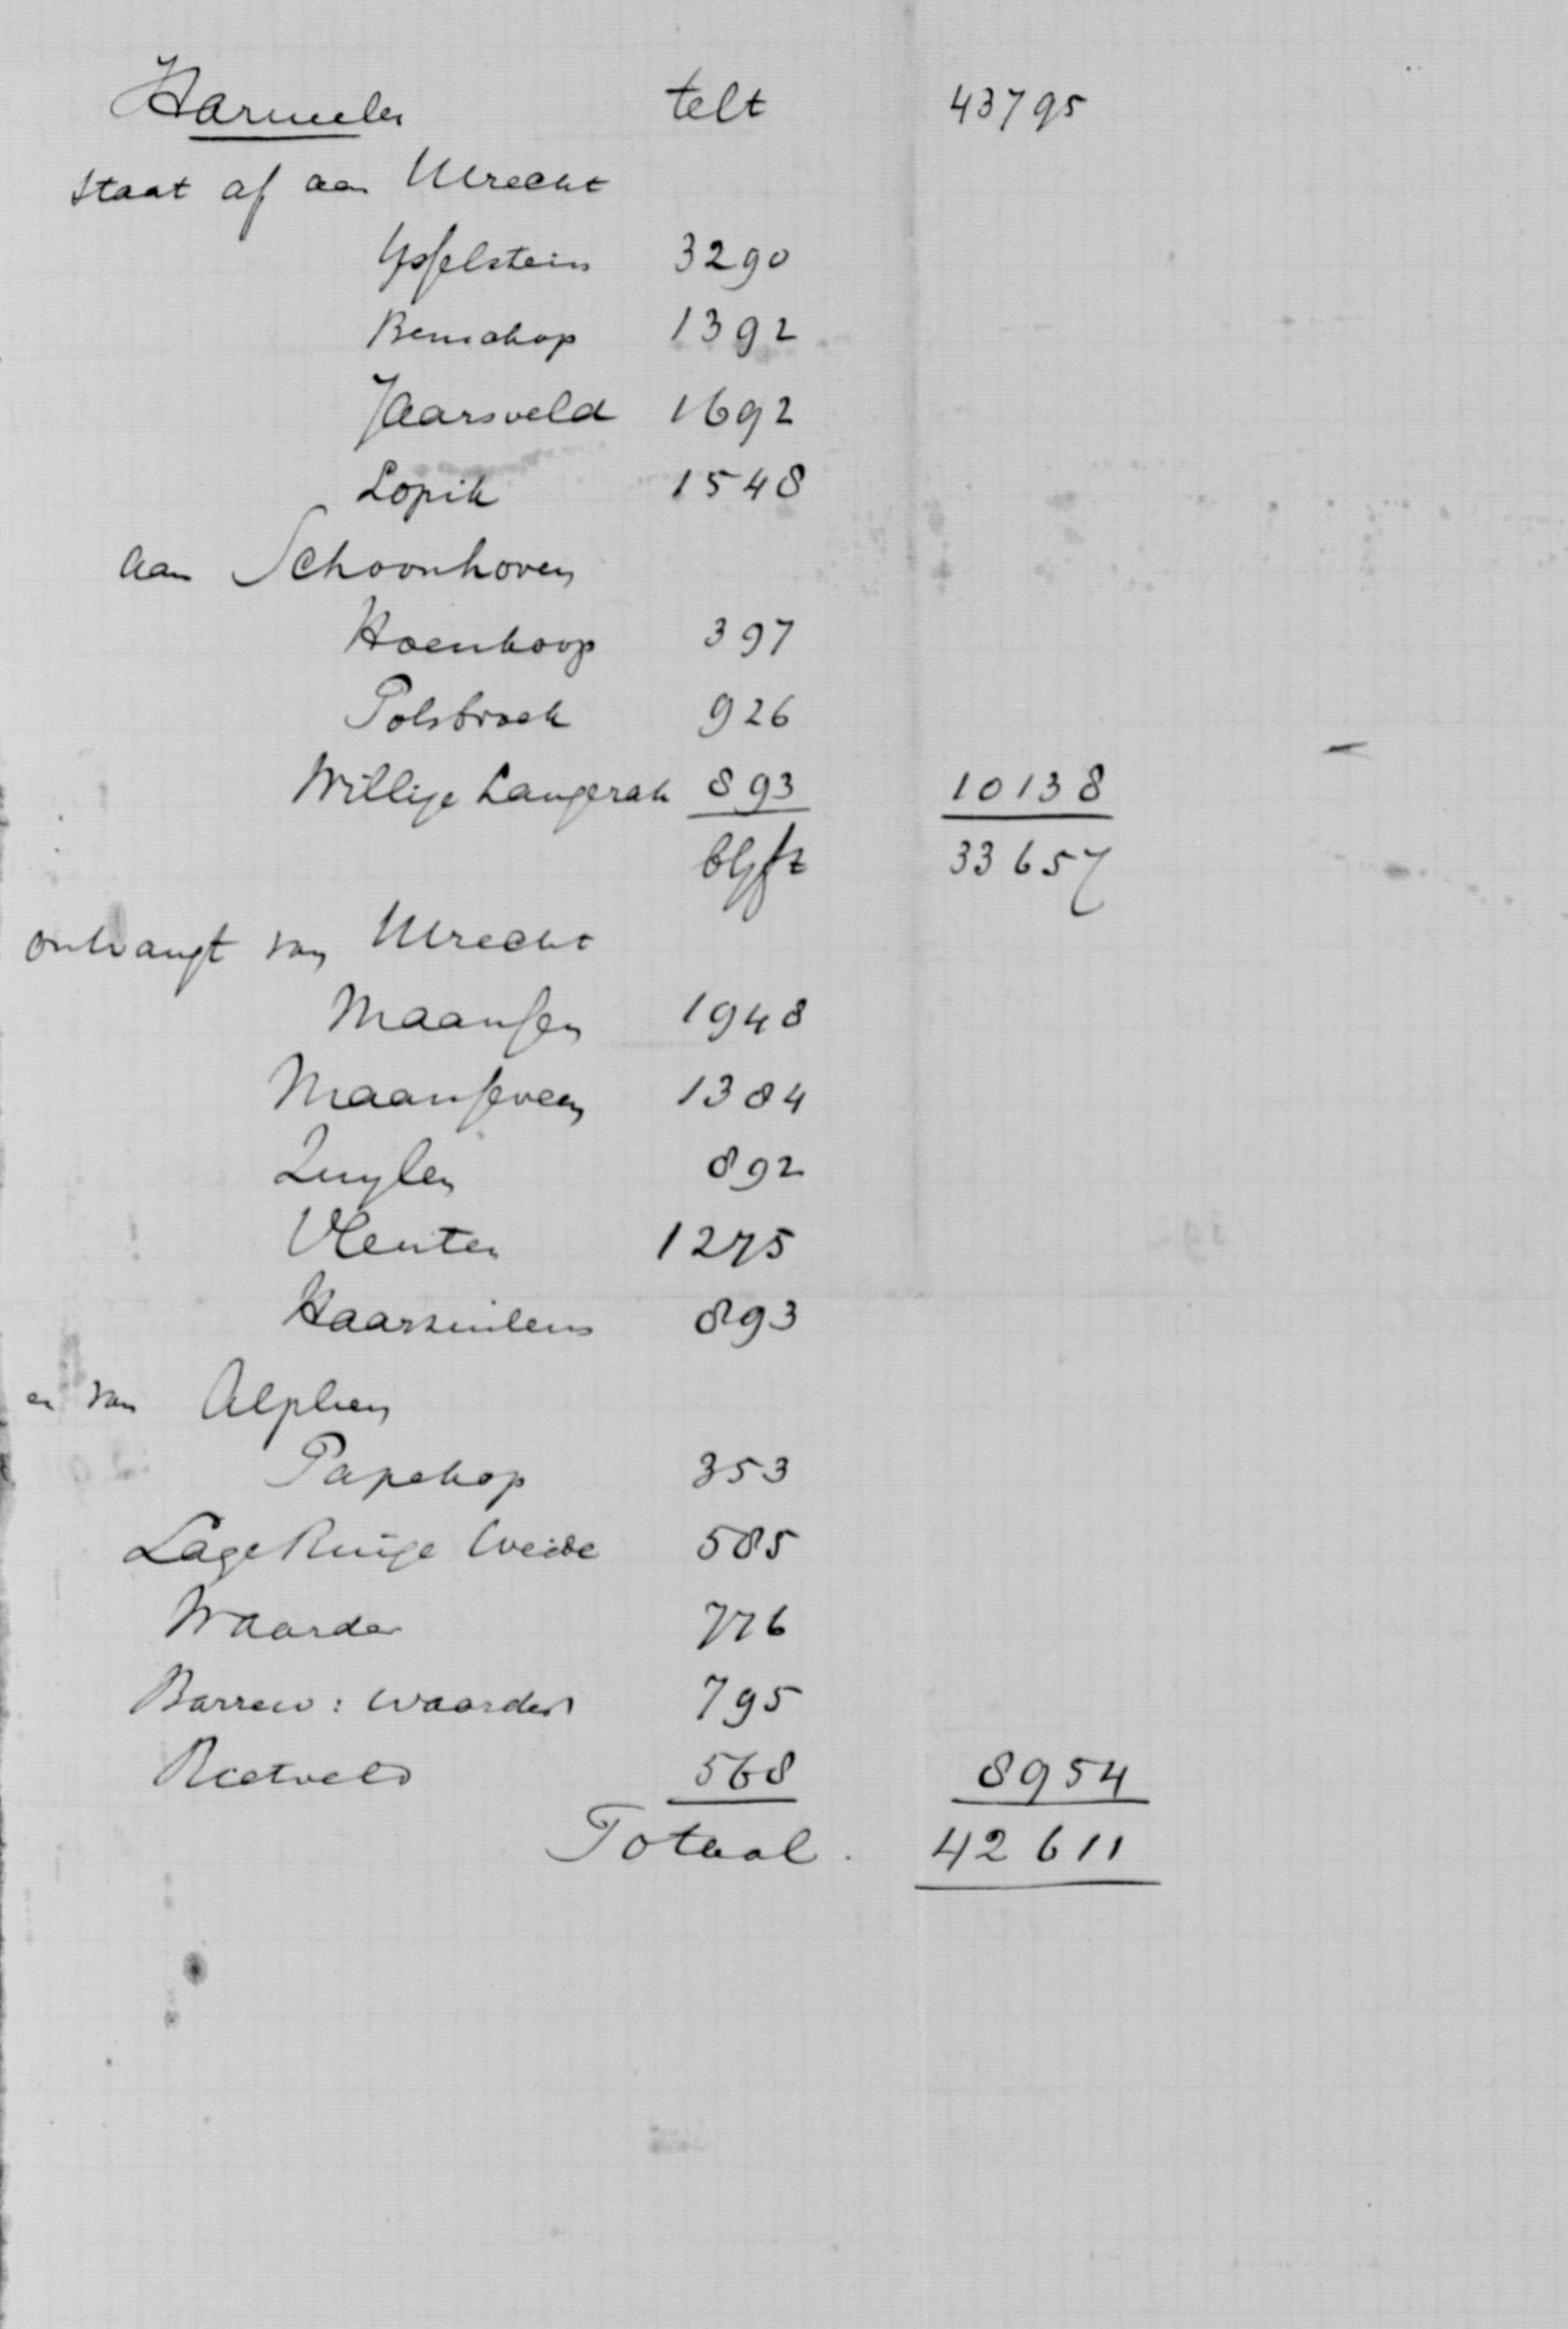 Harmelen telt 43795
staat af aan Utrecht
Ysselstein 3290
Benschop 1392
Jaarsveld 1692
Lopik 1548
aan Schoonhoven
Hoenkoop 397
Polsbroek 926
Willige Langerak 893 10138
blyft 33657
ontvangt van Utrecht
Maarssen 1948
Maarsseveen 1384
Zuylen 892
Vleuten 1275
Haarzuilens 893
en van Alphen
Papekop 353
Lage Ruige Weide 585
Waarder 776
Barrew: waarder 795
Rietveld 568 8954
Totaal. 42611